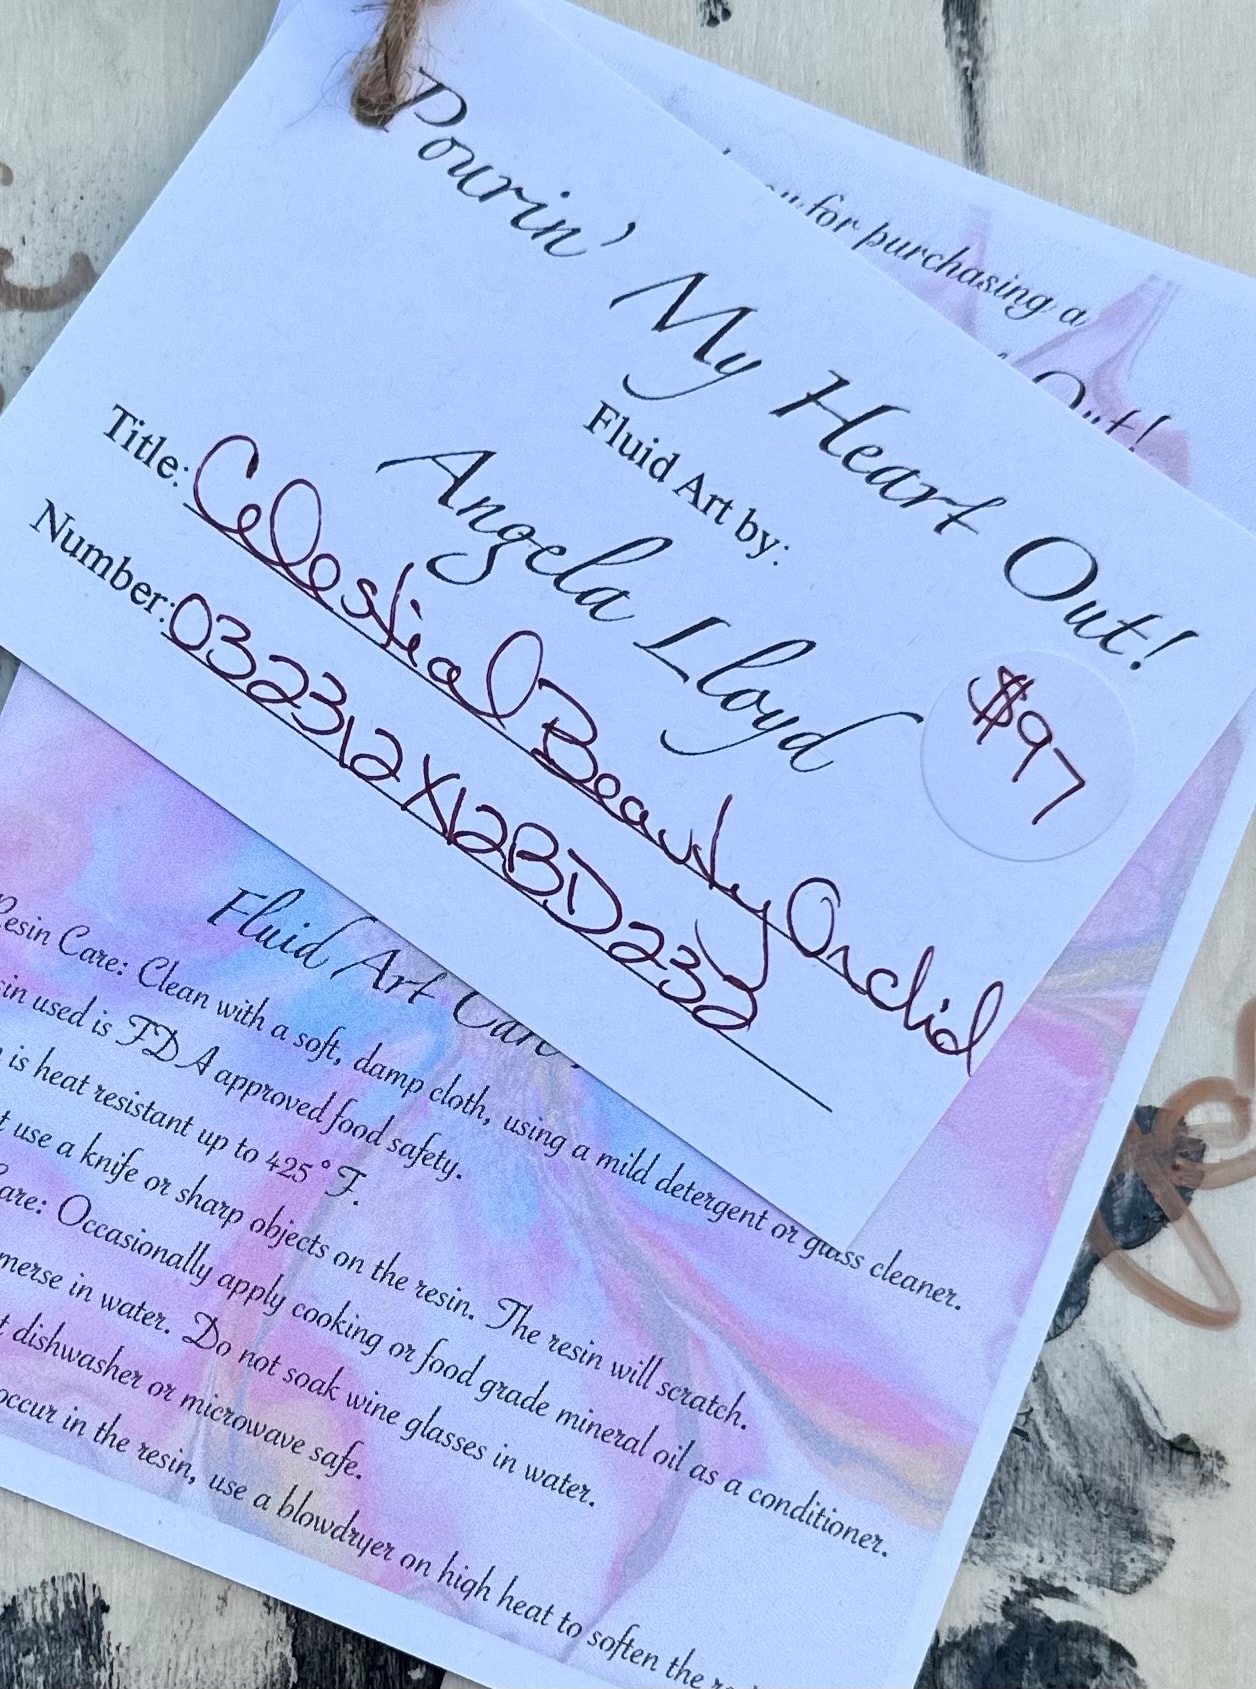 Pourin' My Heart Out!
Fluid Art by:
Angela Lloyd
Title: Celestial Beauty Orchid
Number:032312X12BD232
$97
for purchasing a
Out!
Fluid Art
Resin Care: Clean with a soft, damp cloth, using a mild detergent or glass cleaner.
used is FDA approved food safety.
is heat resistant up to 425° F.
use a knife or sharp objects on the resin. The resin will scratch.
Occasionally apply cooking or food grade mineral oil as a conditioner.
in water. Do not soak wine glasses in water.
dishwasher or microwave safe.
occur in the resin, use a blowdryer on high heat to soften the